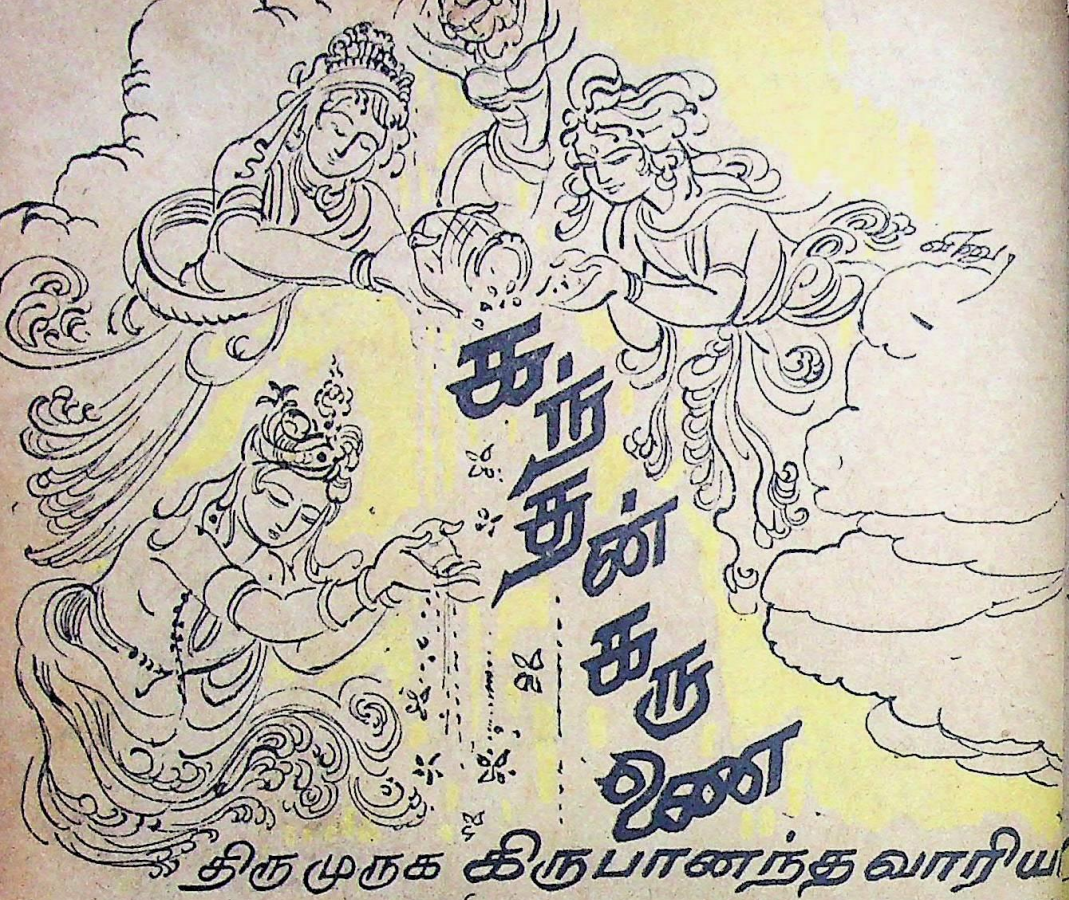 கந்தன்
கருணை
திருமுருக கிருபானந்தவாரிய